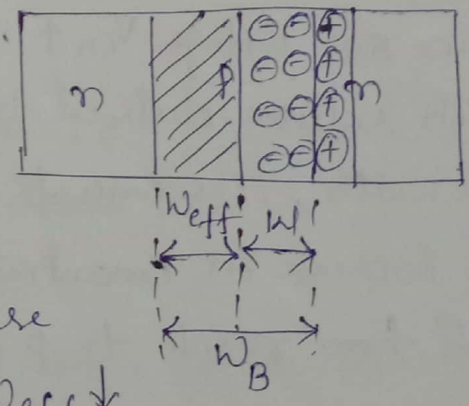 n p n
⊖ ⊖ ⊕
⊖ ⊖ ⊕
⊖ ⊖ ⊕
⊖ ⊖ ⊕
Weff W
WB
se